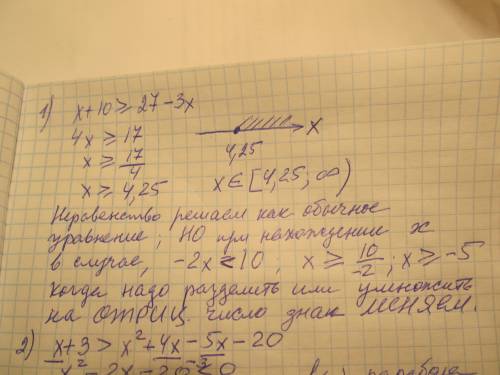 1) x+10 ≥ 27-3x
4x ≥ 17
x ≥ 17/4
x ≥ 4,25
x
4,25
x ∈ [4,25; ∞)
Неравенство решаем как обычное
уравнение; НО при нахождении x
в случае, -2x ≤ 10 ; x ≥ 10/-2 ; x ≥ -5
когда надо разделить или умножить
на ОТРИЦ. число знак МЕНЯЕМ.
2) x+3 > x²+4x-5x-20
x²-2x-